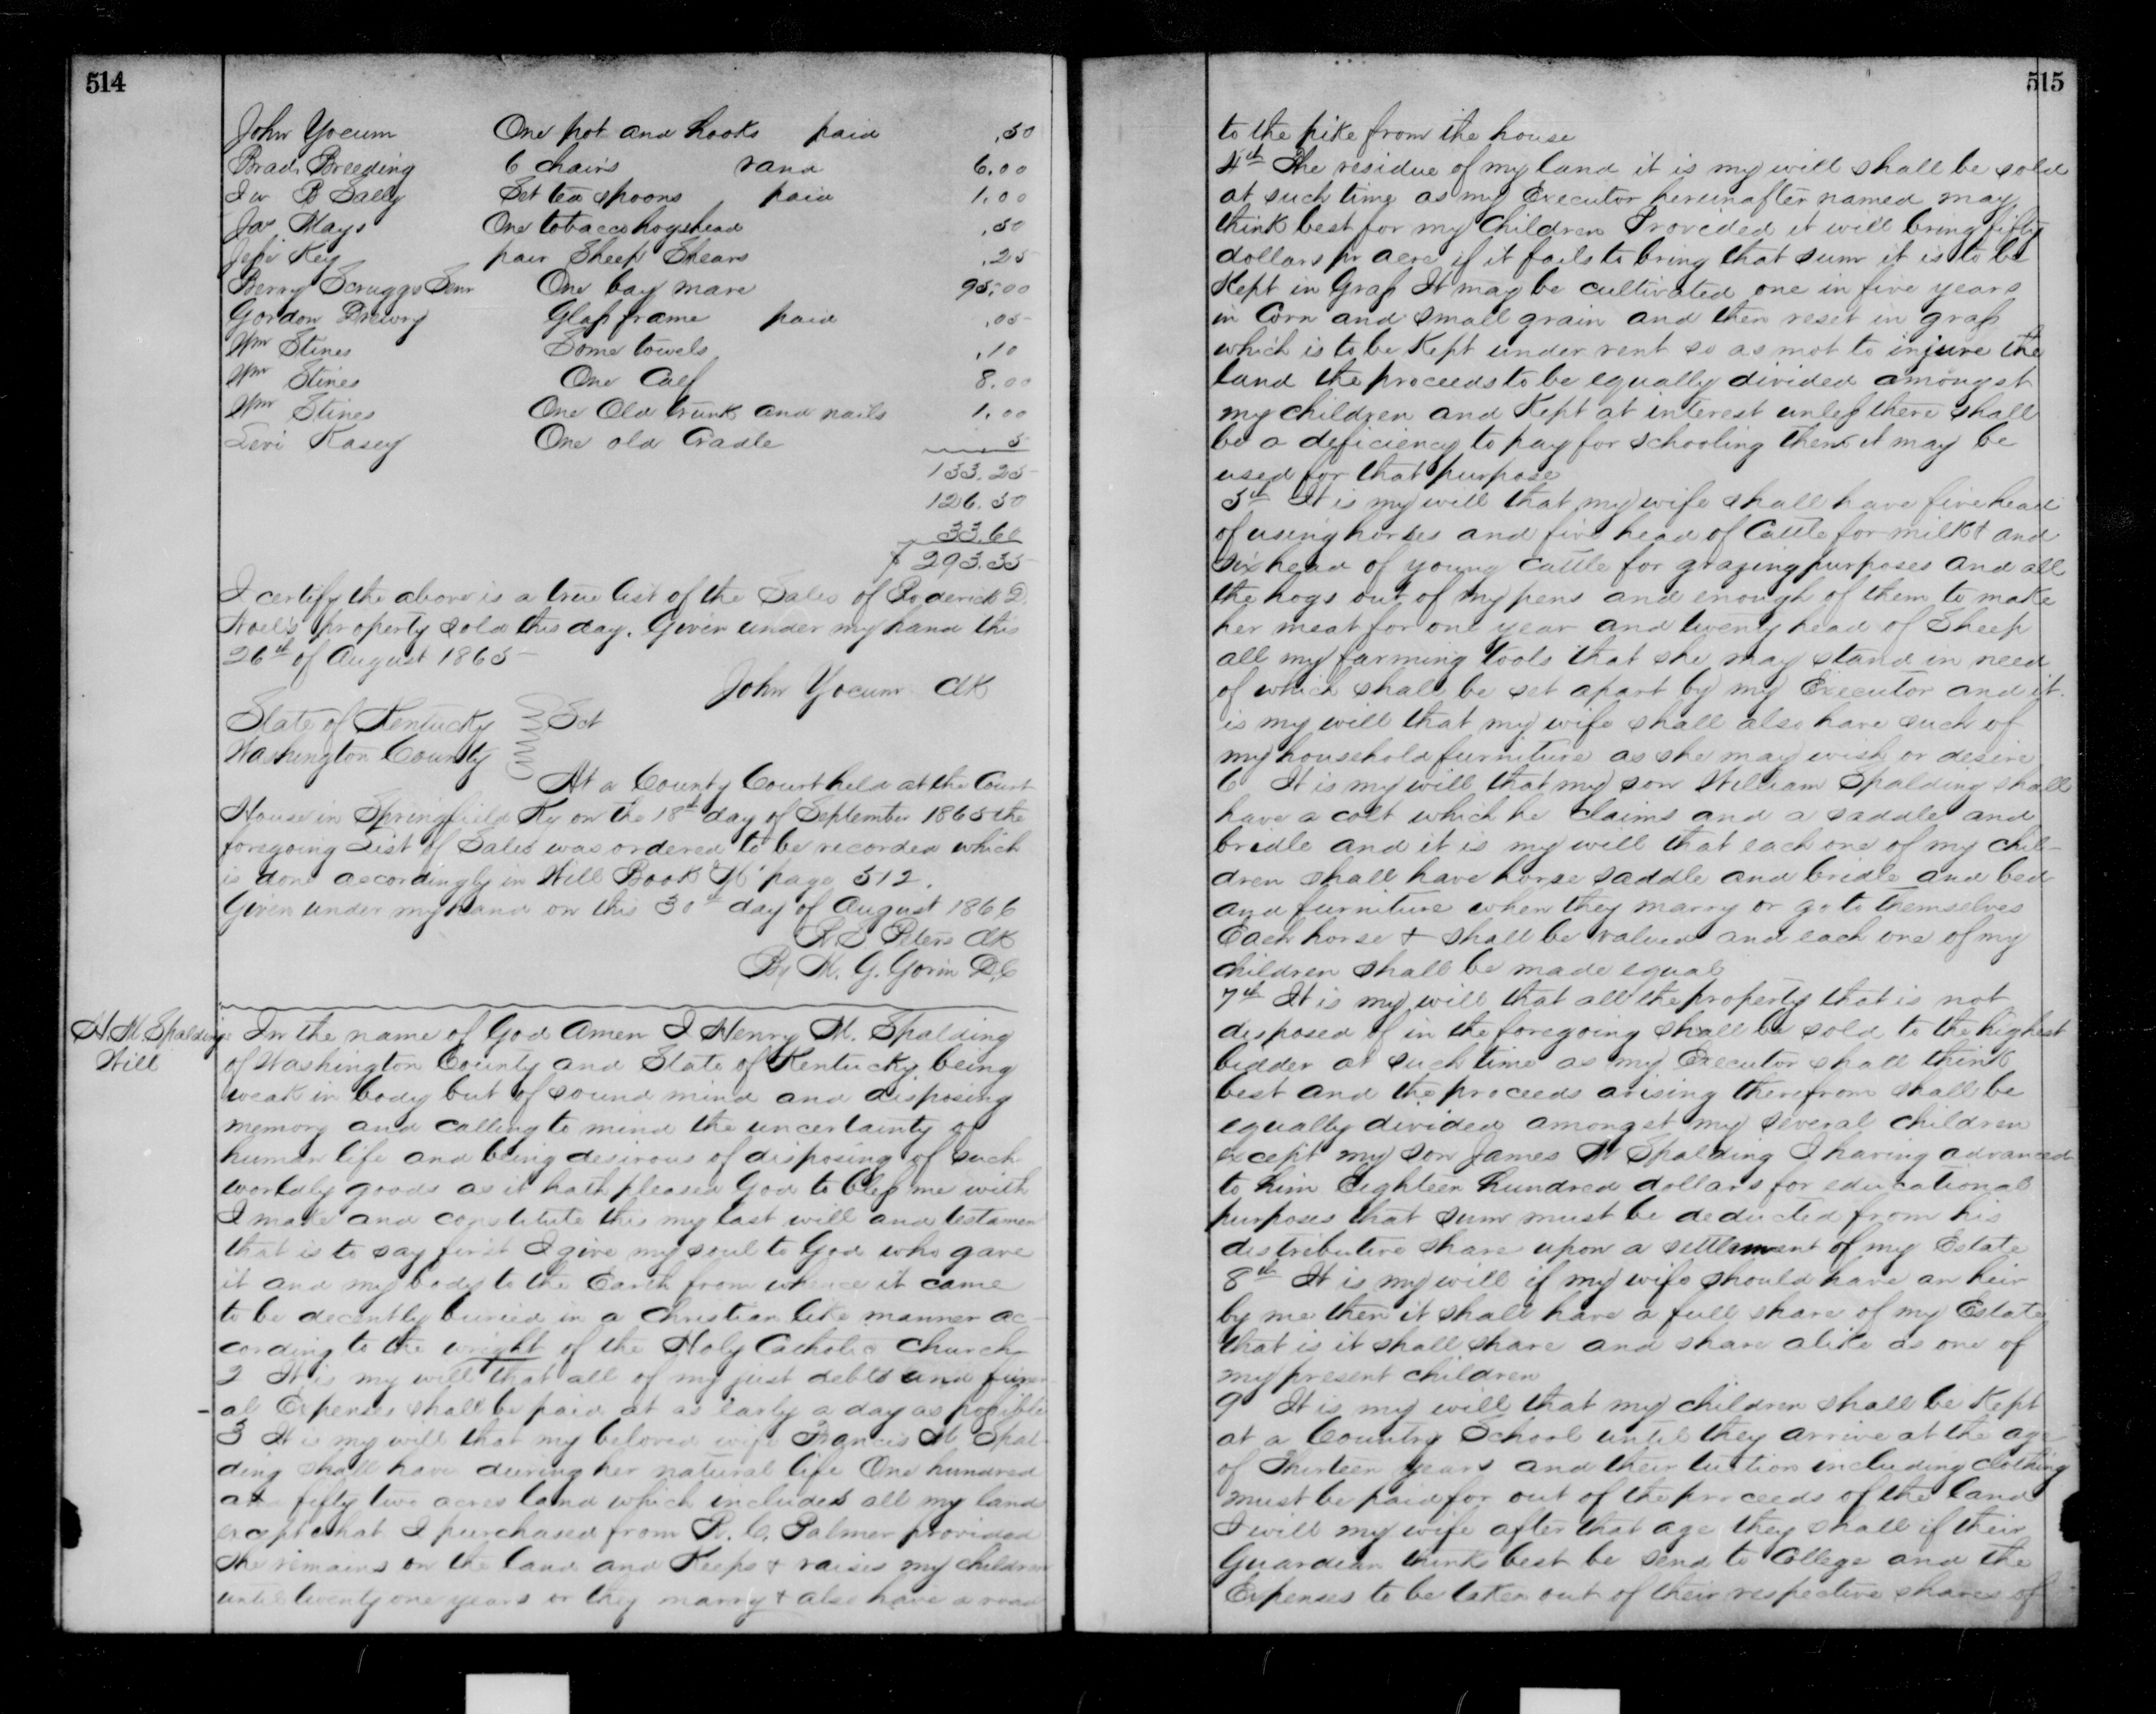 514
John Yocum One pot and hooks paid .50
Brad Breeding 6 chairs rand 6.00
B Sally Set tea spoons paid 1.00
Jas Mays One tobacco hogshead .50
Jepe Key pair Sheep Shears .25
Berry Scruggs Senr One bay mare 95.00
Gordon Drewry Glass frame paid .05
Wm Stines Some towels .10
Wm Stines One Calf 8.00
Wm Stines One Old trunk and nails 1.00
Levi Kasey One old Cradle 5
133.25
126.50
33.60
$293.35
I certify the above is a true list of the Sales of Roderick D.
Noel's property sold this day. Given under my hand this
26th of August 1865
John Yocum Clk
State of Kentucky } Sct
Washington County
At a County Court held at the Court
House in Springfield Ky on the 18th day of September 1865 the
foregoing List of Sales was ordered to be recorded which
is done accordingly in Will Book page 512.
Given under my hand on this 30th day of August 1866
Peters Clk
By G. Gorin D.C
H. M. Spalding's
Will
In the name of God Amen I Henry M. Spalding
of Washington County and State of Kentucky being
weak in body but of sound mind and disposing
memory and calling to mind the uncertainty of
human life and being desirous of disposing of such
worldly goods as it hath pleased God to bless me with
I make and constitute this my last will and testamen
that is to say first I give my soul to God who gave
it and my body to the Earth from whence it came
to be decently buried in a Christian like manner ac-
cording to the wright of the Holy Catholic Church
2 It is my will that all of my just debts and funer-
al Expenses shall be paid at as early a day as possible
3 It is my will that my beloved wife Francis Spal-
ding shall have during her natural life One hundred
and fifty two acres land which includes all my land
except what I purchased from R. C. Palmer provided
she remains on the land and Keeps & raises my children
until twenty one years or they marry & also have a road
515
to the pike from the house
4th The residue of my land it is my will shall be sold
at such time as my Executor hereinafter named may
think best for my Children Provided it will bring fifty
dollars pr acre if it fails to bring that sum it is to be
Kept in Grass It may be cultivated one in five years
in Corn and small grain and then reset in grass
which is to be Kept under rent so as not to injure the
land the proceeds to be equally divided amongst
my children and Kept at interest unless there shall
be a deficiency to pay for schooling then it may be
used for that purpose
5th It is my will that my wife shall have five head
of using horses and five head of Cattle for milk & and
six head of young Cattle for grazing purposes and all
the hogs out of my pens and enough of them to make
her meat for one year and twenty head of Sheep
all my farming Tools that she may stand in need
of which shall be set apart by my Executor and it
is my will that my wife shall also have such of
my household furniture as she may wish or desire
6 It is my will that my son William Spalding shall
have a colt which he claims and a saddle and
bridle and it is my will that each one of my chil-
dren shall have horse saddle and bridle and bed
and furniture when they marry or go to themselves
Each horse & shall be valued and each one of my
children shall be made equal
7th It is my will that all the property that is not
disposed of in the foregoing shall be sold to the highest
bidder at such time as my Executor shall think
best and the proceeds arising therefrom shall be
equally divided amongst my several children
except my son James Spalding I having advanced
to him Eighteen hundred dollars for educational
purposes that sum must be deducted from his
distributive share upon a settlement of my Estate
8th It is my will if my wife should have an heir
by me then it shall have a full share of my Estate
that is it shall share and share alike as one of
my present children
9 It is my will that my children shall be Kept
at a Country School until they arrive at the age
of Thirteen years and their tuition including clothing
must be paid for out of the proceeds of the land
I will my wife after that age they shall if their
Guardian thinks best be send to College and the
Expenses to be taken out of their respective shares of